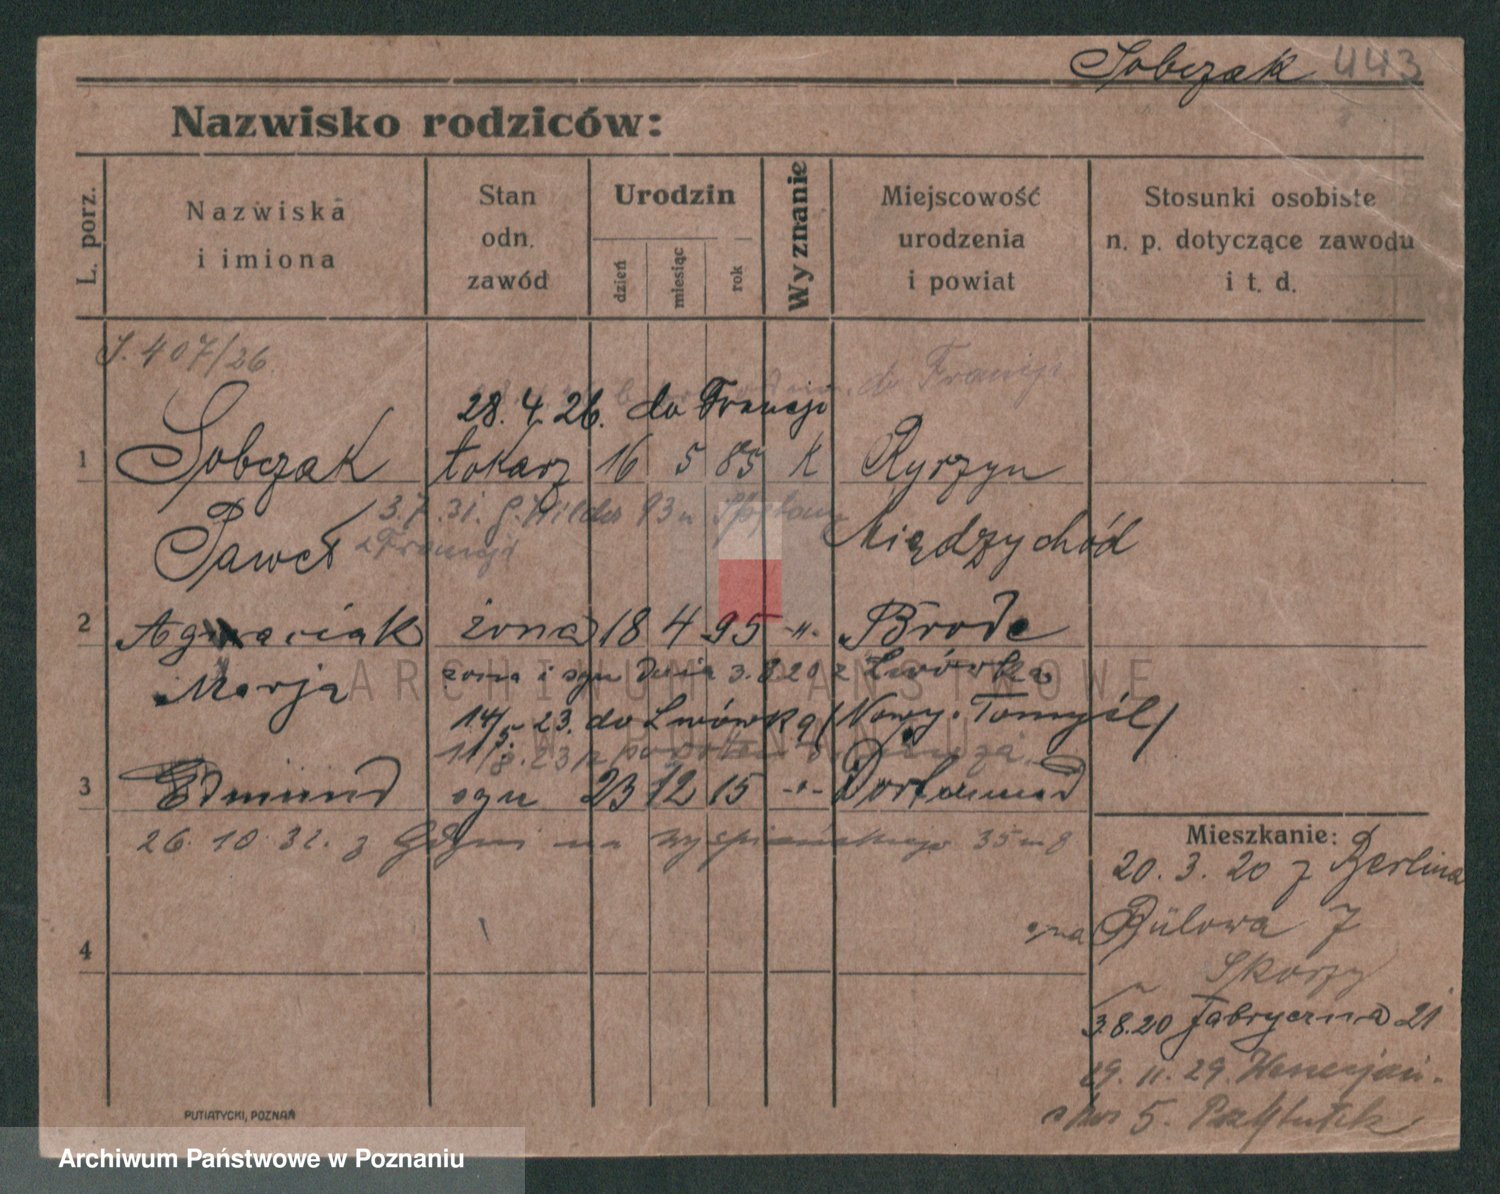 Sobczak 443
Nazwisko rodziców:
L. porz.
Nazwiska
i imiona
Stan
odn.
zawód
Urodzin
dzień
miesiąc
rok
Wyznanie
Miejscowość
urodzenia
i powiat
Stosunki osobiste
n. p. dotyczące zawodu
i t. d.
J. 407/26
do Francji
28. 4. 26. do Francji
1 Sobczak tokarz 16 5 85 K Ryrzyn
3.7.31. G. Wilda 93
z Francji
Paweł Międzychód
2 żona 18 4 95 -"- Brode
Marja
żona i syn dnia 3.8.20 z Lwówka
14/5. 23. do Lwówka (Nowy-Tomyśl)
11/8. 23 z
3 Edmund syn 23 12 15 -"- Dortmund
26. 10. 32. z Gdyni na Wyspiańskiego 35 m 8
4
Mieszkanie:
20. 3. 20 z Berlina
na Bülowa 7
u Skorzy
3.8.20 Fabryczna 21
19. 11. 29.
5.
PUTIATYCKI, POZNAŃ
ARCHIWUM PAŃSTWOWE
W POZNANIU
Archiwum Państwowe w Poznaniu